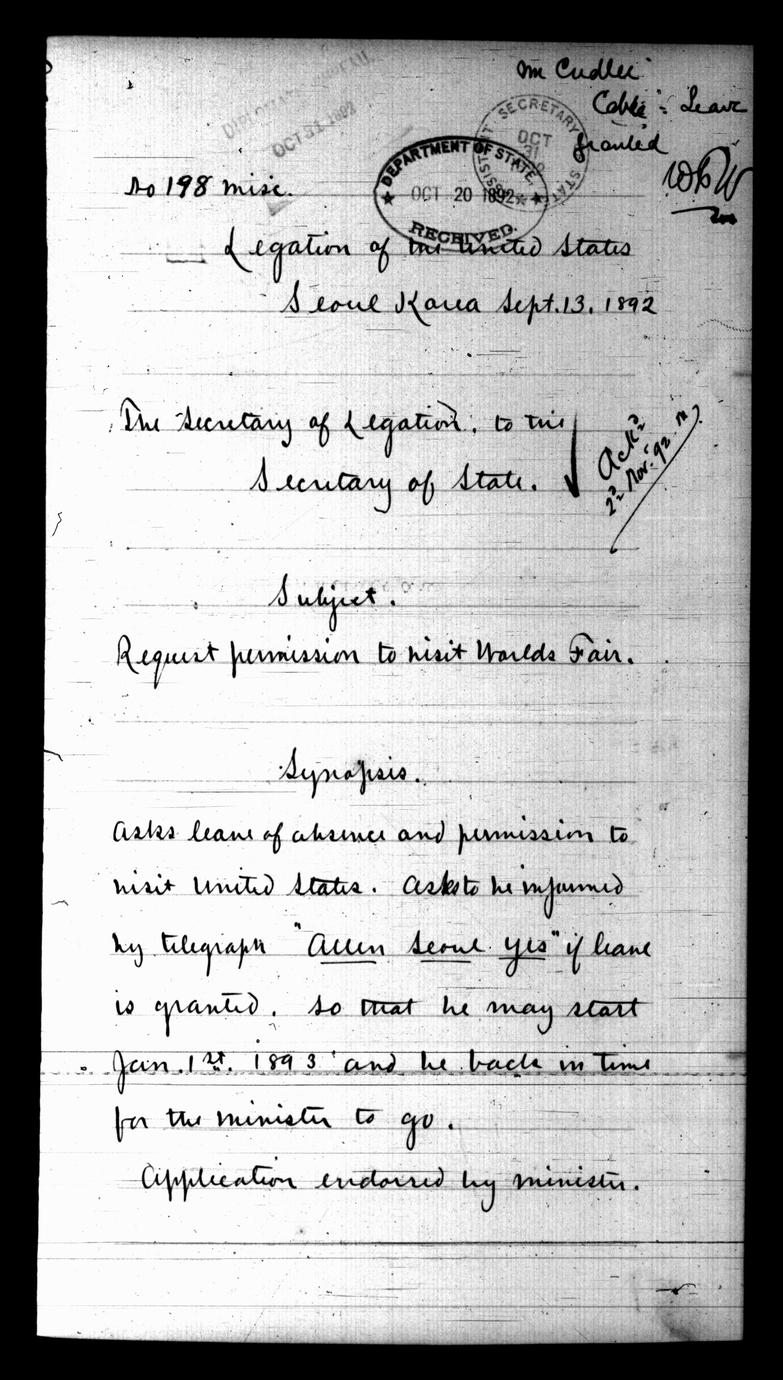 Mr Cridler
Cable: Leave
granted
DIPLOMATIC BUREAU
OCT 31 1892
SECRETARY
OCT
31
DEPARTMENT OF STATE,
OCT 20 1892
RECEIVED.
No 198 Misc.
Legation of the United States
Seoul Korea Sept. 13. 1892
The Secretary of Legation, to the
Secretary of State.
Ack'd
22 Nov: 92
Subject.
Request permission to visit Worlds Fair.
Synopsis.
Asks leave of absence and permission to
visit United States. Asks to be informed
by telegraph "Allen Seoul Yes" if leave
is granted. So that he may start
Jan. 1st. 1893 and be back in time
for the minister to go.
Application endorsed by minister.